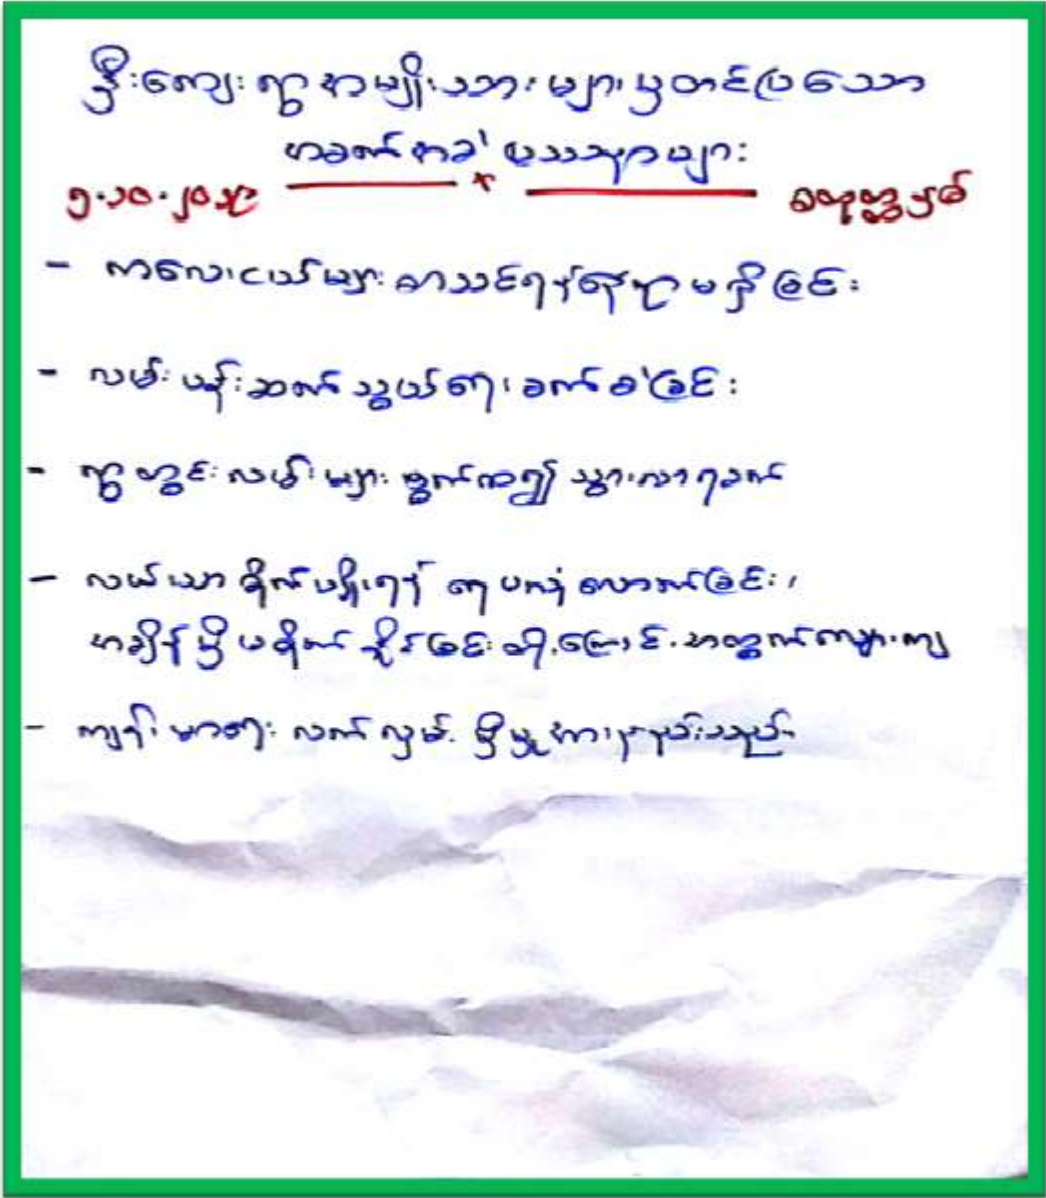 ဦးကျေးရွာအမျိုးသားများမှတင်ပြသော
အခက်အခဲ ပြဿနာများ
၅.၁၀.၂၀၁၃
- ကလေးငယ်များ စာသင်ရန်နေရာမရှိခြင်း
- လမ်းပန်းဆက်သွယ်ရေးခက်ခဲခြင်း
- ရွာတွင်းလမ်းများ ကျွံ၍ သွားလာရခက်
- လယ်ယာစိုက်ပျိုးရန် ရေမလုံလောက်ခြင်း၊
အချိန်မှီမစိုက်နိုင်ခြင်းတို့ကြောင့် အထွက်လျော့ကျ
- ကျန်းမာရေး လက်လှမ်းမှီမှုအားနည်းသည်